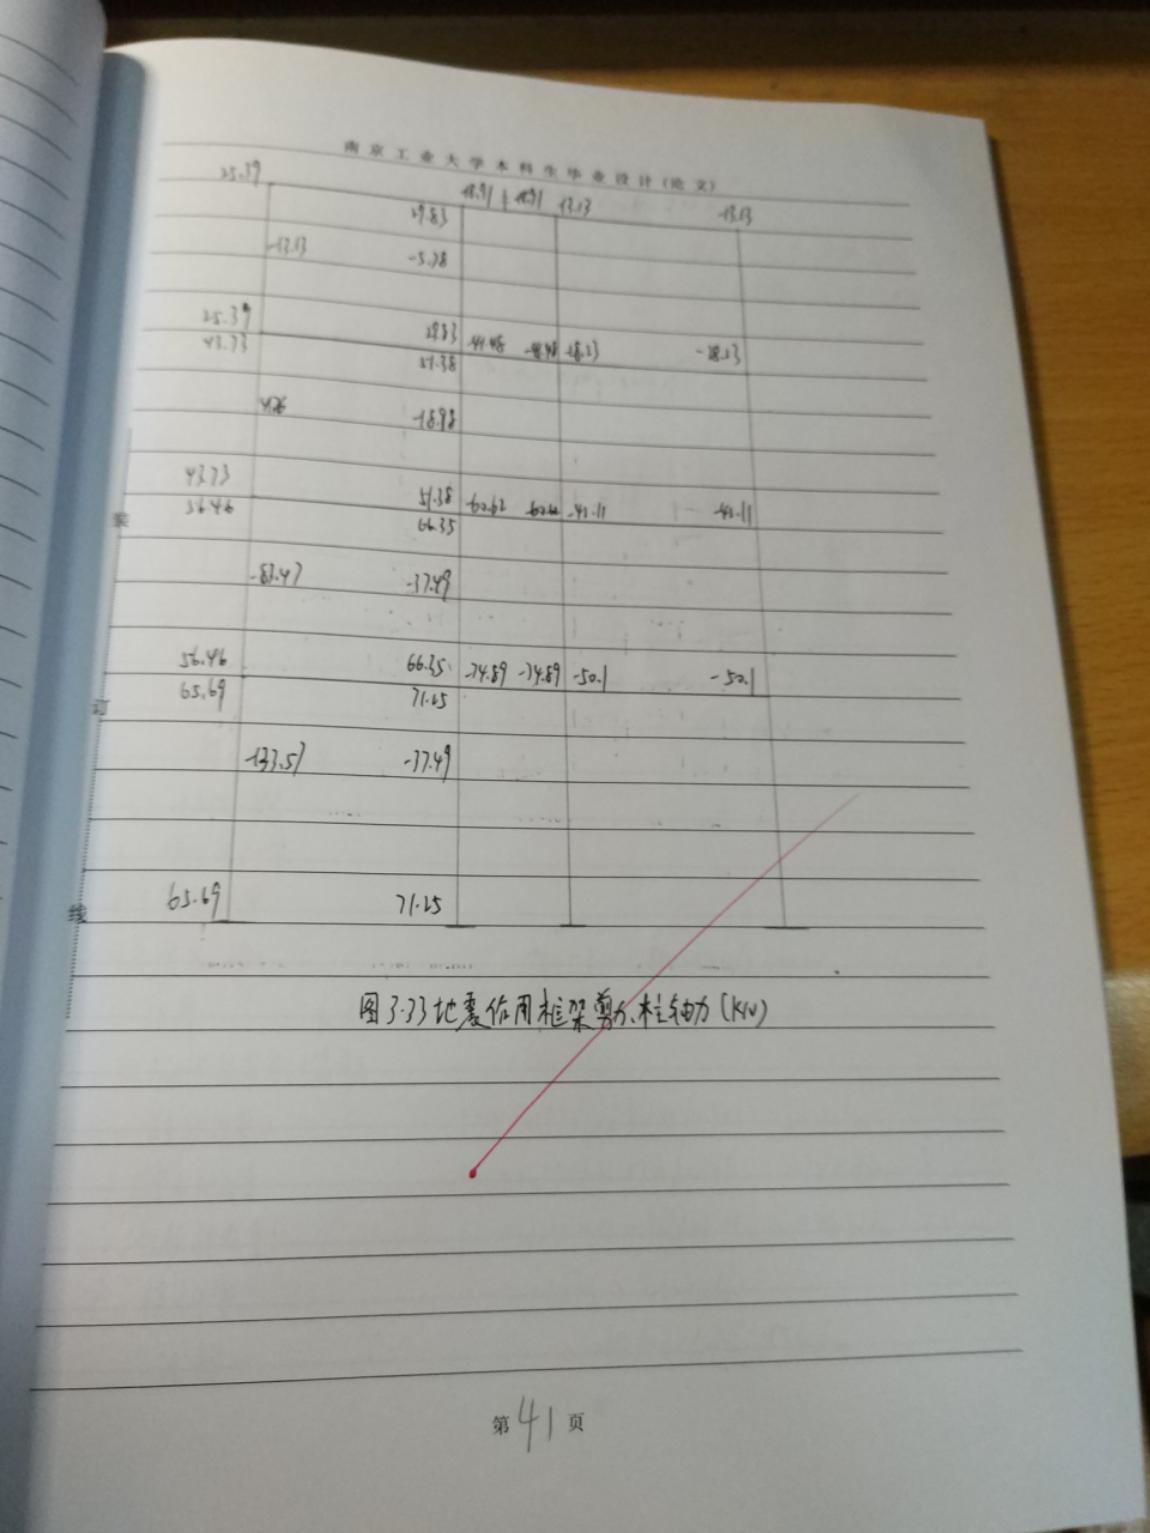 南京工业大学本科生毕业设计(论文)
25.39
-13.13 -13.13
29.83
-13.13 -5.78
25.39 29.83 -28.23 -28.23
43.73 51.38
-18.98
43.73 51.38 -60.62 -60.62 -41.11 -41.11
56.46 66.35
装
-83.47 -37.49
56.46 66.35 -74.89 -74.89 -50.1 -50.1
65.69 71.25
订
-133.57 -37.49
65.69 71.25
线
图3.33地震作用框架剪力、柱轴力(KN)
第41页